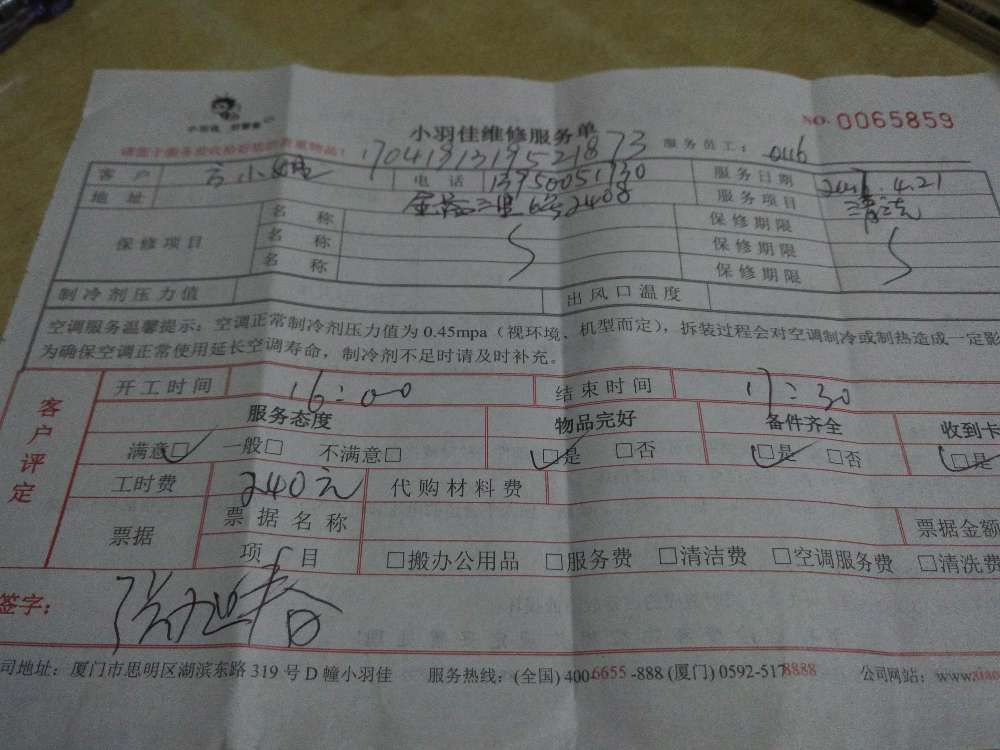 小羽佳维修服务单
NO. 0065859
1704181319521873
服务员工: 0116
客户 方小姐 电话 13950051730 服务日期 4.21
地址 里6号2408 服务项目 清洗
保修项目 名称 保修期限
名称 保修期限
名称 保修期限
制冷剂压力值 出风口温度
空调服务温馨提示：空调正常制冷剂压力值为0.45mpa（视环境、机型而定），拆装过程会对空调制冷或制热造成一定影
为确保空调正常使用延长空调寿命，制冷剂不足时请及时补充。
客户评定
开工时间 16:00 结束时间 17:30
服务态度 物品完好 备件齐全 收到卡
满意□ 一般□ 不满意□ □是 □否 □是 □否 □是
工时费 240元 代购材料费
票据 票据名称 票据金额
项目 □搬办公用品 □服务费 □清洁费 □空调服务费 □清洗费
签字：
司地址：厦门市思明区湖滨东路319号D幢小羽佳 服务热线：(全国) 400-6655-888 (厦门) 0592-5178888 公司网站：www.xiao